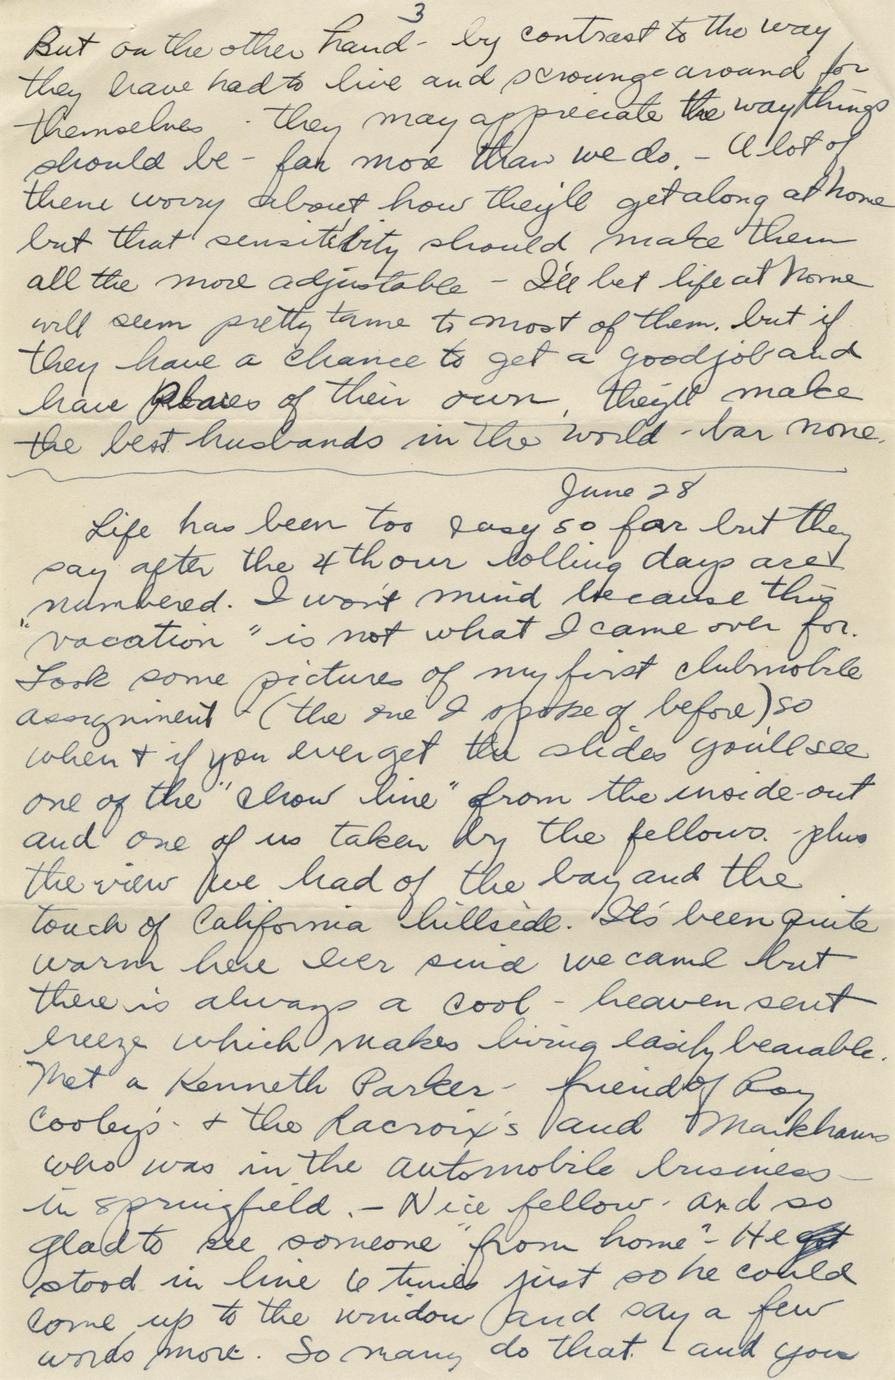 3
But on the other hand - by contrast to the way
they have had to live and scrounge around for
themselves - they may appreciate the way things
should be - far more than we do. - A lot of
them worry about how they'll get along at home
but that sensitibity should make them
all the more adjustable - I'll bet life at home
will seem pretty tame to most of them. but if
they have a chance to get a good job and
have places of their own, they'll make
the best husbands in the world - bar none.
June 28
Life has been too easy so far but they
say after the 4th our rolling days are
numbered. I won't mind because this
"vacation" is not what I came over for.
Took some pictures of my first clubmobile
assignment - (the one I spoke of before) so
when & if you ever get the slides you'll see
one of the "chow line" from the inside-out
and one of us taken by the fellows. - plus
the view we had of the bay and the
touch of California hillside. It's been quite
warm here ever since we came but
there is always a cool - heaven sent
breeze which makes living easily bearable.
Met a Kenneth Parker - friend of Roy
Cooley's - & the Lacroix's and Markhams
who was in the automobile business
in Springfield. - Nice fellow - and so
glad to see someone "from home" - He
stood in line 6 times just so he could
come up to the window and say a few
words more. So many do that - and you